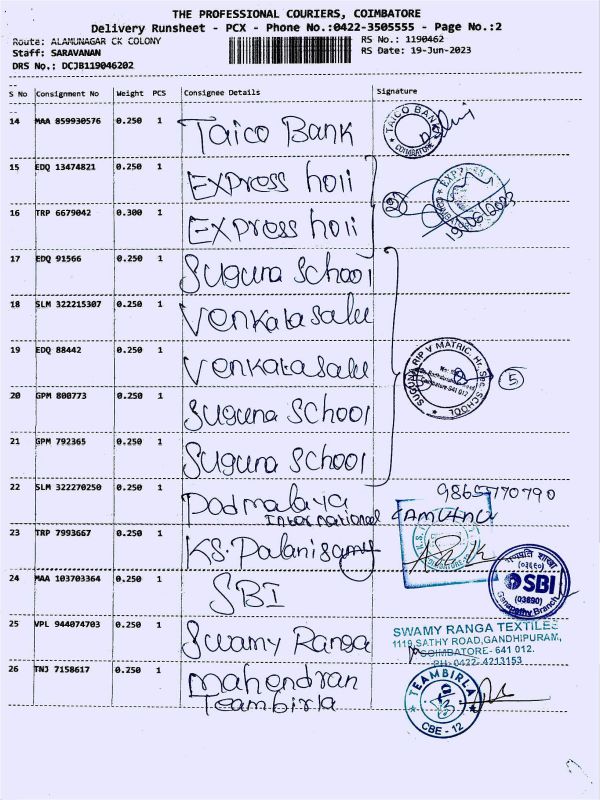 THE PROFESSIONAL COURIERS, COIMBATORE
Delivery Runsheet - PCX - Phone No.:0422-3505555 - Page No.:2
Route: ALAMUNAGAR CK COLONY
RS No.: 1190462
Staff: SARAVANAN
RS Date: 19-Jun-2023
DRS No.: DCJB119046202
S No Consignment No Weight PCS Consignee Details Signature
14 MAA 859930576 0.250 1 Taico Bank
TAICO BANK
COIMBATORE
15 EDQ 13474821 0.250 1 Express holi
16 TRP 6679042 0.300 1 Express holi
19/06/2023
17 EDQ 91566 0.250 1 Suguna School
18 SLM 322215307 0.250 1 Venkatasalu
19 EDQ 88442 0.250 1 Venkatasalu
SUGUNA RIP V MATRIC. Hr. Sec. SCHOOL
5
20 GPM 800773 0.250 1 Suguna School
21 GPM 792365 0.250 1 Suguna School
22 SLM 322270250 0.250 1 Padmalaya
International
9865770790
23 TRP 7993667 0.250 1 K.S. Palanisamy
24 MAA 103703364 0.250 1 SBI
गणपति शाखा
(०३६९०)
SBI
(03690)
Ganapathy Branch
25 VPL 944074703 0.250 1 Swamy Ranga
SWAMY RANGA TEXTILES
1119, SATHY ROAD, GANDHIPURAM,
COIMBATORE- 641 012.
PH: 0422- 4213153
26 TNJ 7158617 0.250 1 Mahendran
Teambirla
TEAMBIRLA
CBE - 12